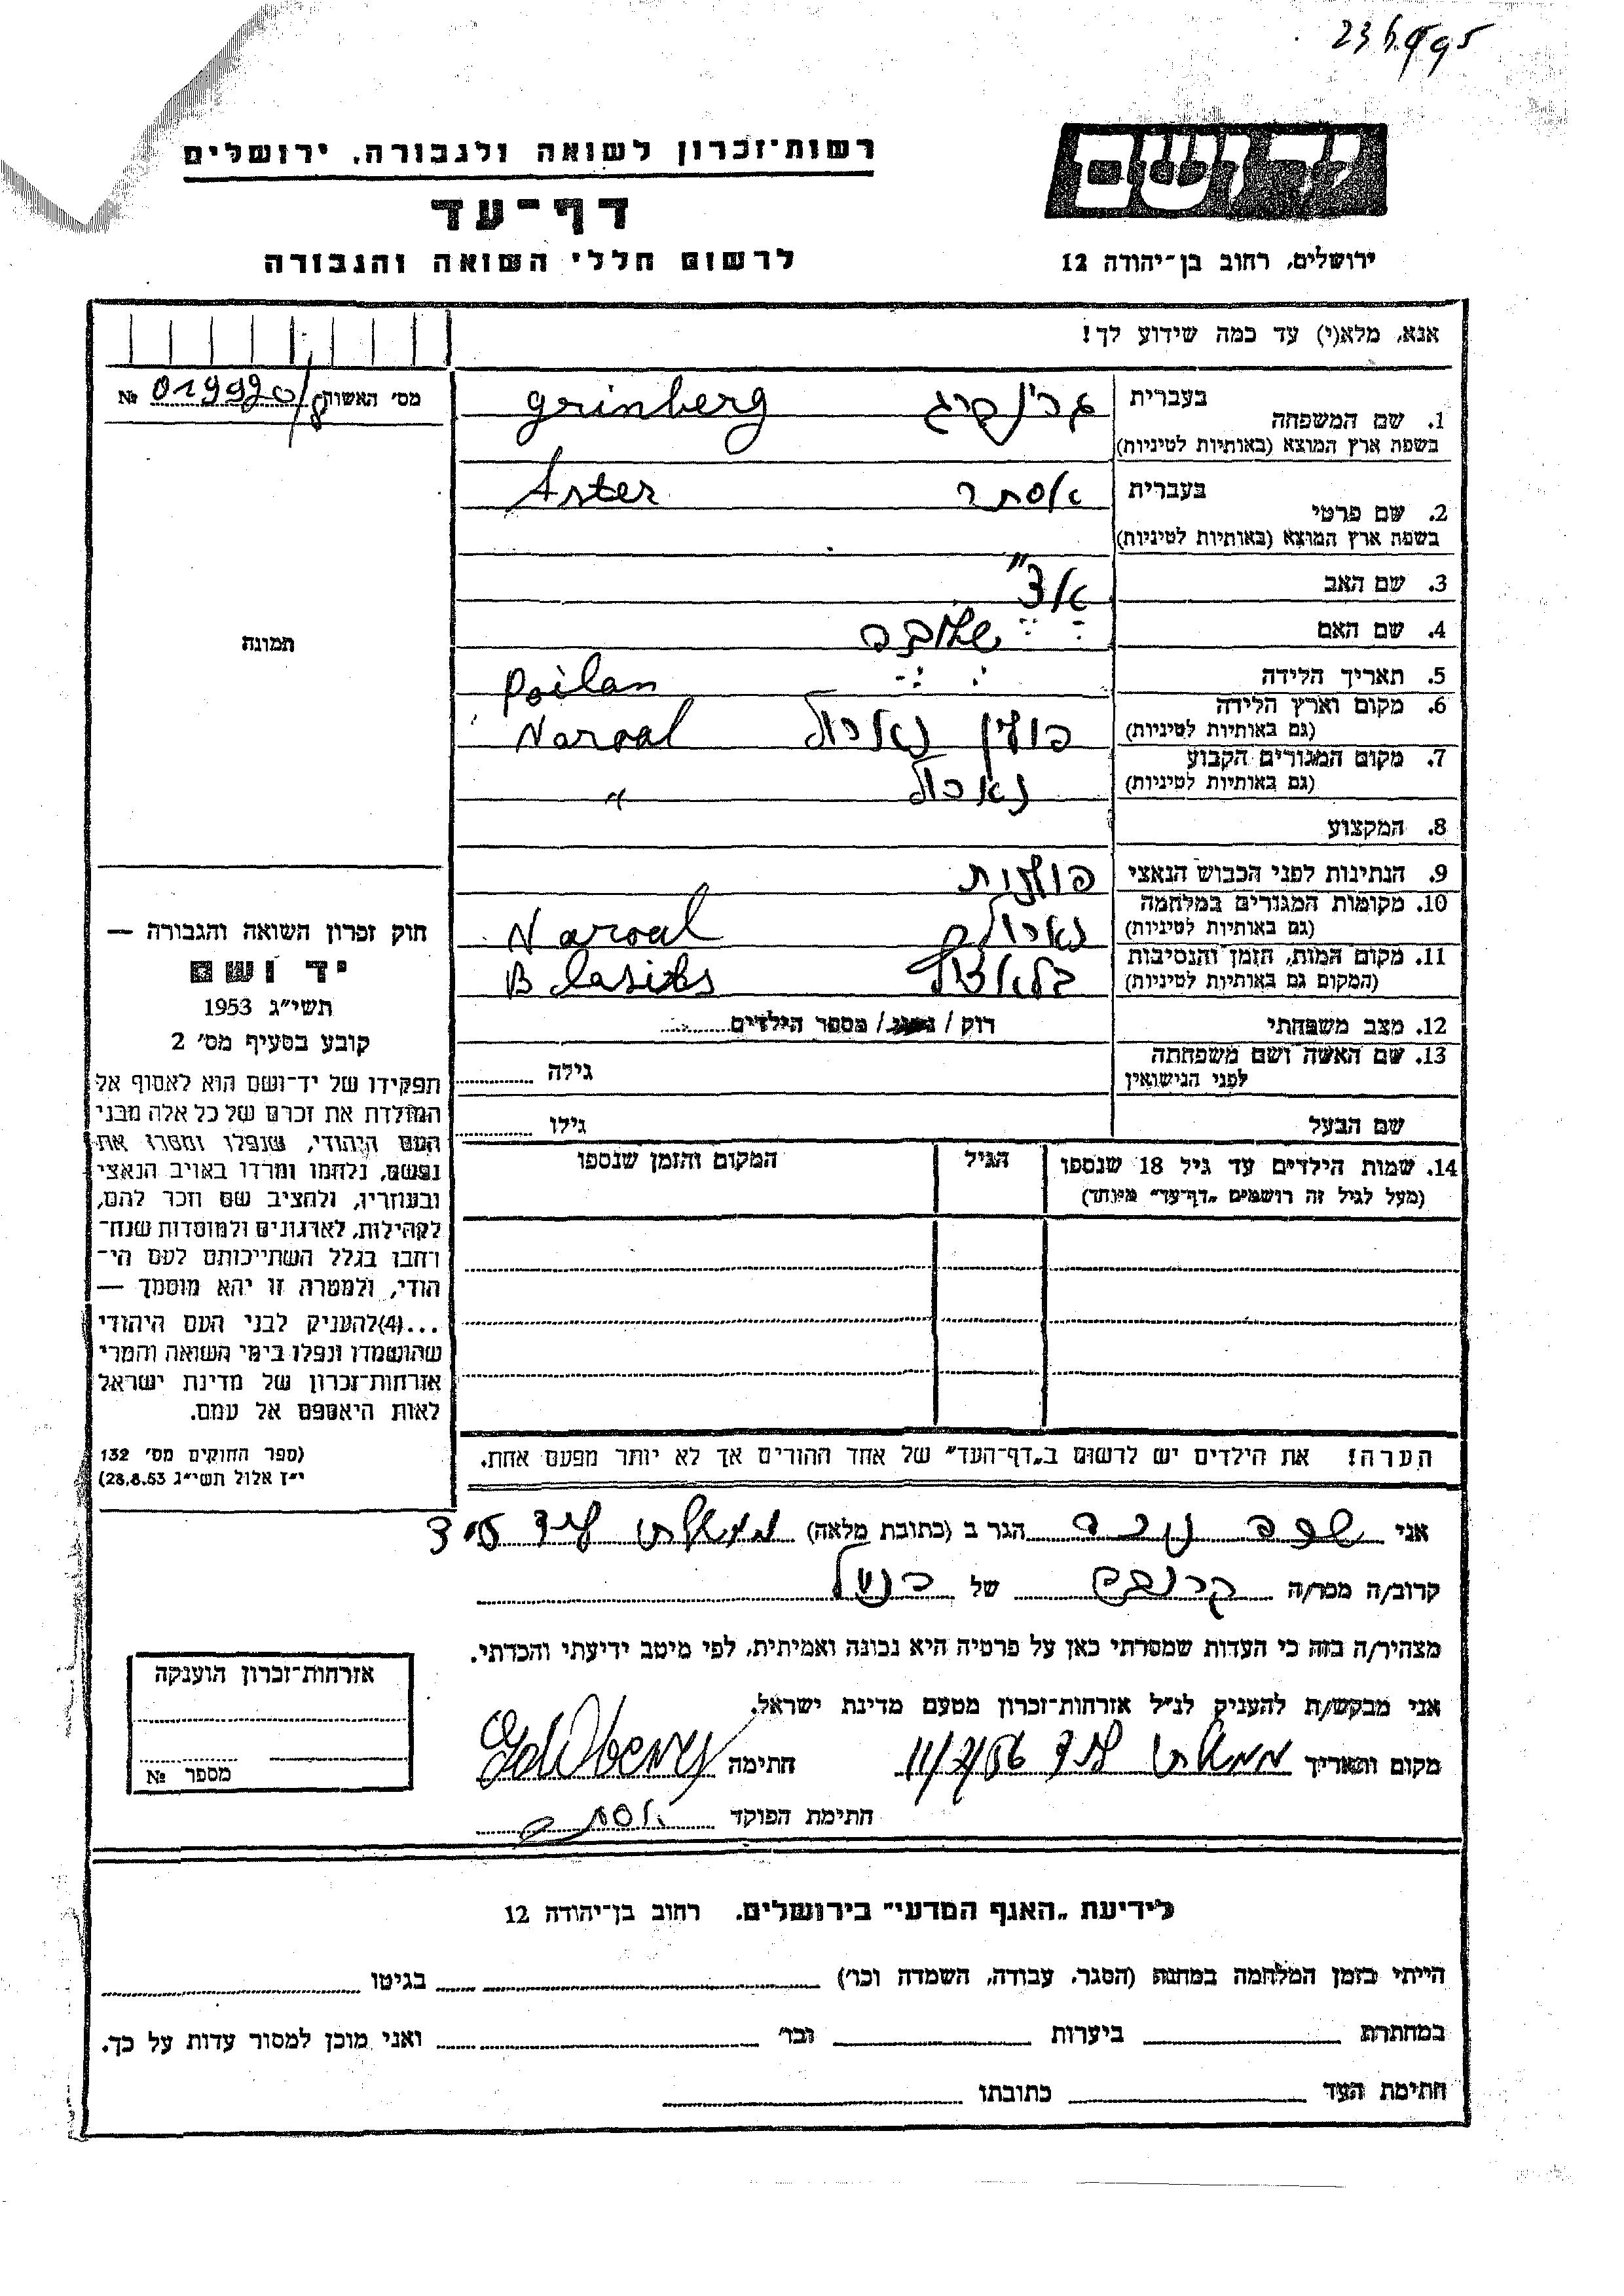 23.6.995
רשות־זכרון לשואה ולגבורה, ירושלים
דף־עד
לרשום חללי השואה והגבורה
יד ושם
ירושלים, רחוב בן־יהודה 12
אנא, מלא(י) עד כמה שידוע לך!
מס׳ האשוח № 019990/8
1. שם המשפחה
בעברית גרינברג grinberg
בשפת ארץ המוצא (באותיות לטיניות)
2. שם פרטי
בעברית אסתר Aster
בשפת ארץ המוצא (באותיות לטיניות)
3. שם האב
4. שם האם
5. תאריך הלידה
Poilan
6. מקום וארץ הלידה
(גם באותיות לטיניות) פולין נארול Naroal
7. מקום המגורים הקבוע
(גם באותיות לטיניות) נארול "
8. המקצוע
9. הנתינות לפני הכבוש הנאצי פולנית
10. מקומות המגורים במלחמה
(גם באותיות לטיניות) Naroal
11. מקום המות, הזמן והנסיבות
(המקום גם באותיות לטיניות)
12. מצב משפחתי רוק / נשוי / מספר הילדים
13. שם האשה ושם משפחתה
לפני הנישואין גילה
שם הבעל גילו
14. שמות הילדים עד גיל 18 שנספו הגיל המקום והזמן שנספו
(מעל לגיל זה רושמים „דף־עד״ מיוחד)
הערה! את הילדים יש לרשום ב„דף־העד״ של אחד ההורים אך לא יותר מפעם אחת.
תמונה
חוק זכרון השואה והגבורה —
יד ושם
תשי״ג 1953
קובע בסעיף מס׳ 2
תפקידו של יד־ושם הוא לאסוף אל
המולדת את זכרם של כל אלה מבני
העם היהודי, שנפלו ומסרו את
נפשם, נלחמו ומרדו באויב הנאצי
ובעוזריו, ולהציב שם וזכר להם,
לקהילות, לארגונים ולמוסדות שנח־
רחבו בגלל השתייכותם לעם הי־
הודי, ולמטרה זו יהא מוסמך —
...(4)להעניק לבני העם היהודי
שהושמדו ונפלו בימי השואה והמרי
אזרחות־זכרון של מדינת ישראל
לאות היאספם אל עמם.
(ספר החוקים מס׳ 132
י״ז אלול תשי״ג 28.8.53)
אני הגר ב (כתובת מלאה)
קרוב/ה מכר/ה של
מצהיר/ה בזה כי העדות שמסרתי כאן על פרטיה היא נכונה ואמיתית, לפי מיטב ידיעתי והכרתי.
אני מבקש/ת להעניק לנ״ל אזרחות־זכרון מטעם מדינת ישראל.
מקום ותאריך חתימה
חתימת הפוקד אסתר
אזרחות־זכרון הוענקה
מספר №
לידיעת „האגף המדעי״ בירושלים, רחוב בן־יהודה 12
הייתי בזמן המלחמה במחנה (הסגר, עבודה, השמדה וכו׳) בגיטו
במחתרת ביערות וכו׳ ואני מוכן למסור עדות על כך.
חתימת העד כתובתו